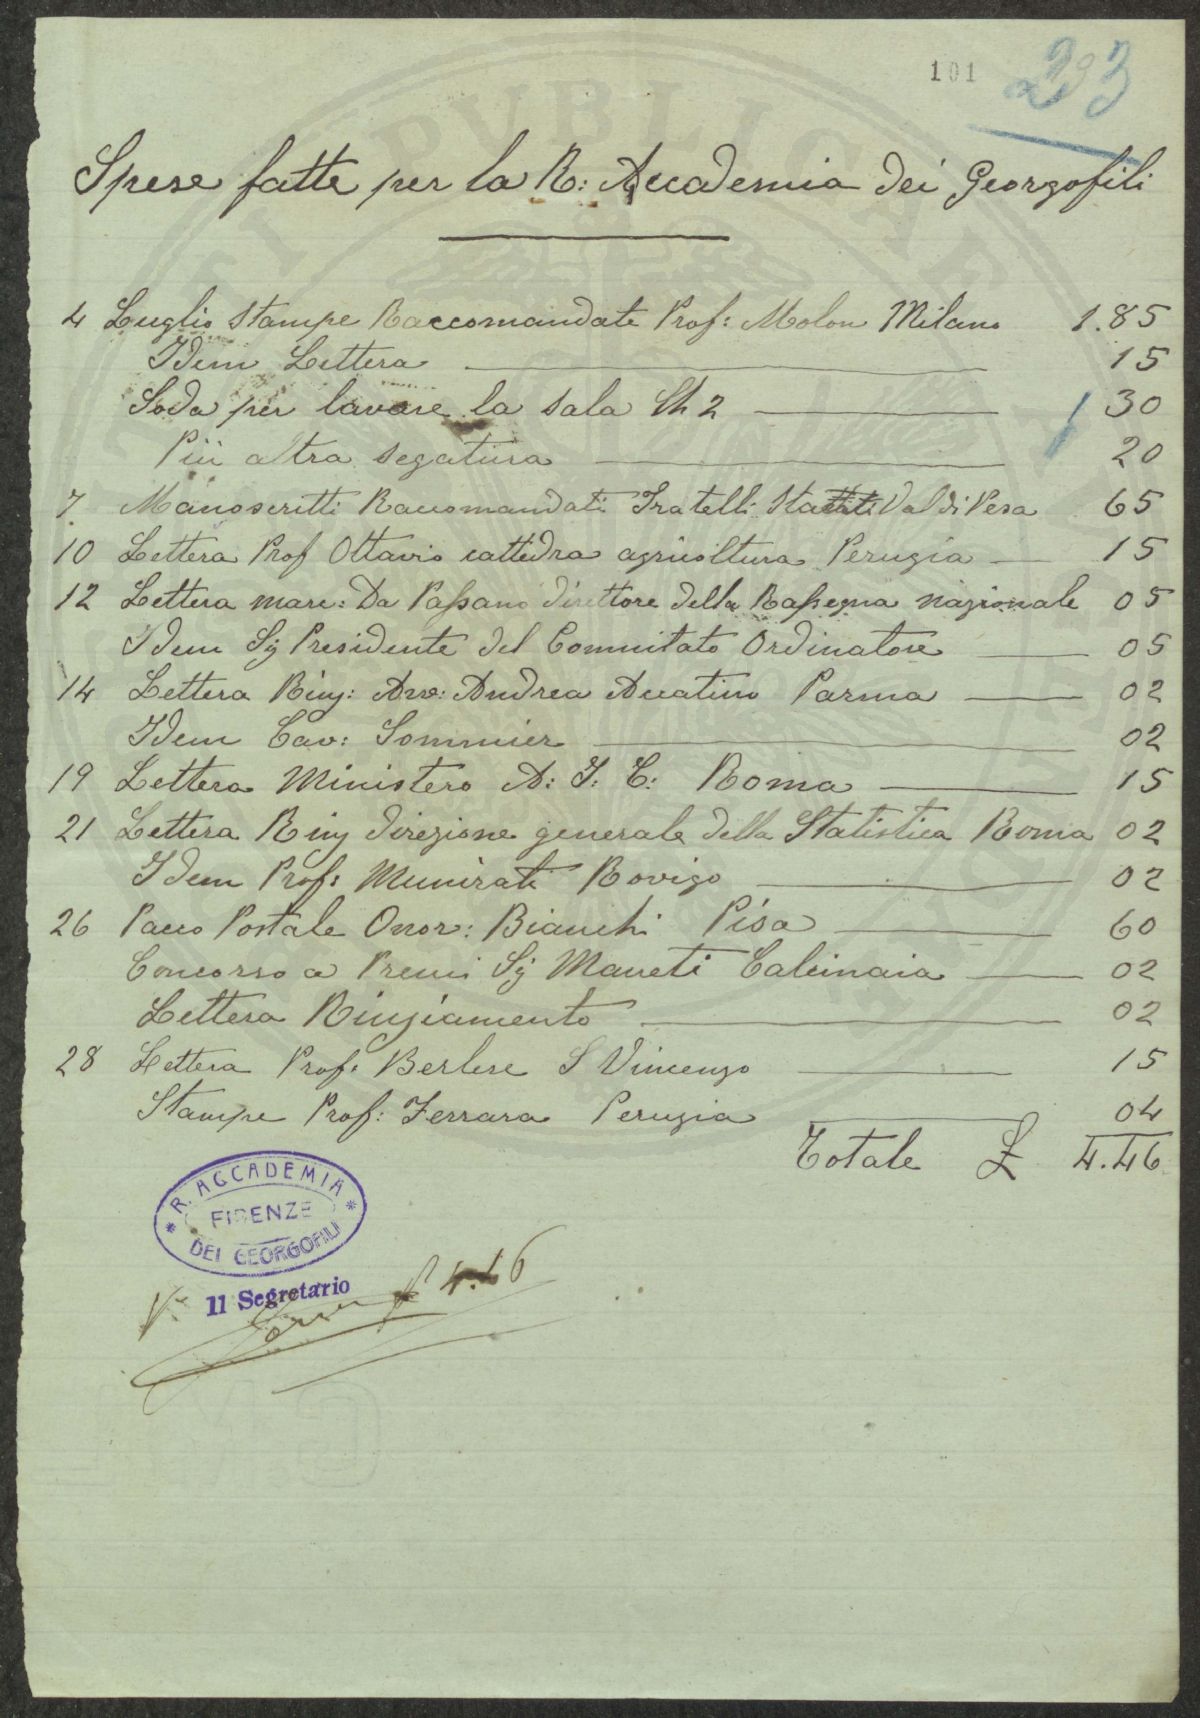 101
233
Spese fatte per la R: Accademia dei Georgofili
4 Luglio Stampe Raccomandate Prof: Molon Milano 1.85
Idem Lettera 15
Soda per lavare la sala Ch 2 30
Più altra segatura 20
7 Manoscritti Raccomandati Fratelli Val di Pesa 65
10 Lettera Prof Ottavio cattedra agricoltura Perugia 15
12 Lettera marc: Da Passano direttore della Rassegna nazionale 05
Idem Sig Presidente del Commitato Ordinatore 05
14 Lettera Ring: Avv: Andrea Accatino Parma 02
Idem Cav: Sommier 02
19 Lettera Ministero A: I: C: Roma 15
21 Lettera Ring direzione generale della Statistica Roma 02
Idem Prof: Munerati Rovigo 02
26 Pacco Postale Onor: Bianchi Pisa 60
Concorso a Premi Sig Maneti Calcinaia 02
Lettera Ringiamento 02
28 Lettera Prof: Berlese S Vincenzo 15
Stampe Prof: Ferrara Perugia 04
Totale £ 4.46
R. ACCADEMIA
FIRENZE
DEI GEORGOFILI
Il Segretario
£ 4.46